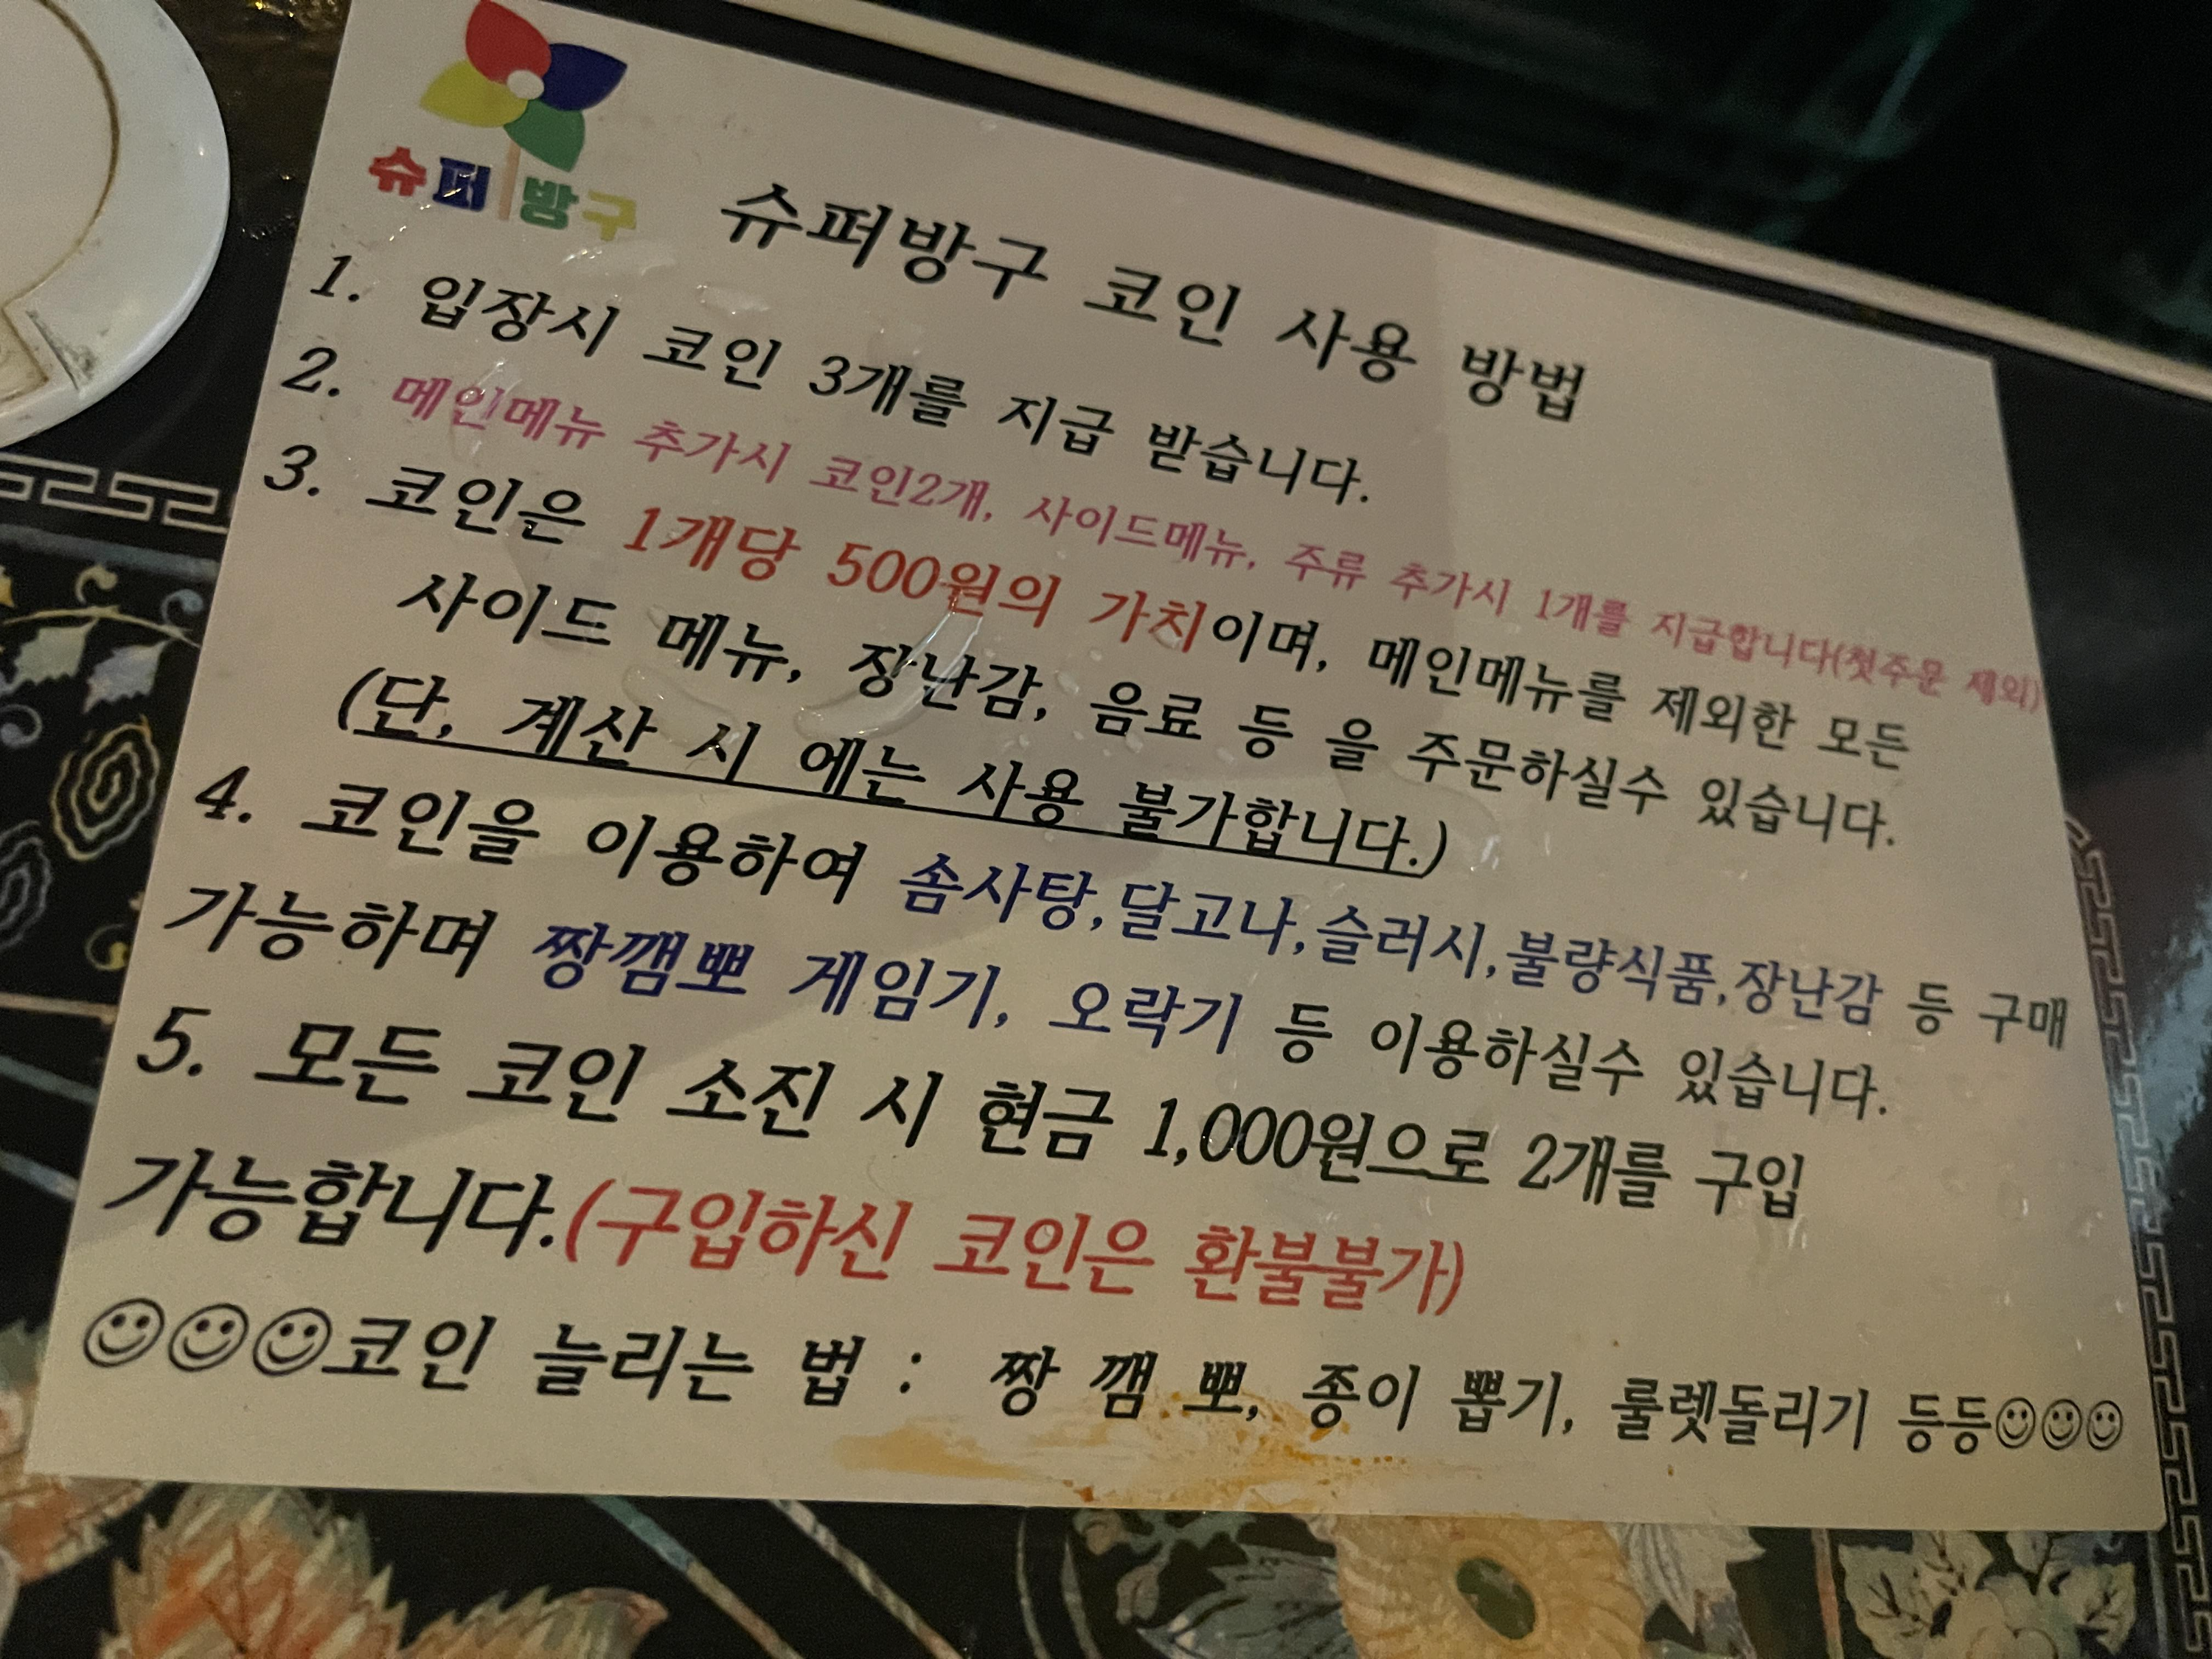 슈퍼방구
슈퍼방구 코인 사용 방법
1. 입장시 코인 3개를 지급 받습니다.
2. 메인메뉴 추가시 코인2개, 사이드메뉴, 주류 추가시 1개를 지급합니다(첫주문 제외)
3. 코인은 1개당 500원의 가치이며, 메인메뉴를 제외한 모든
사이드 메뉴, 장난감, 음료 등 을 주문하실수 있습니다.
(단, 계산 시 에는 사용 불가합니다.)
4. 코인을 이용하여 솜사탕,달고나,슬러시,불량식품,장난감 등 구매
가능하며 짱깸뽀 게임기, 오락기 등 이용하실수 있습니다.
5. 모든 코인 소진 시 현금 1,000원으로 2개를 구입
가능합니다.(구입하신 코인은 환불불가)
☺☺☺코인 늘리는 법 : 짱 깸 뽀, 종이 뽑기, 룰렛돌리기 등등☺☺☺